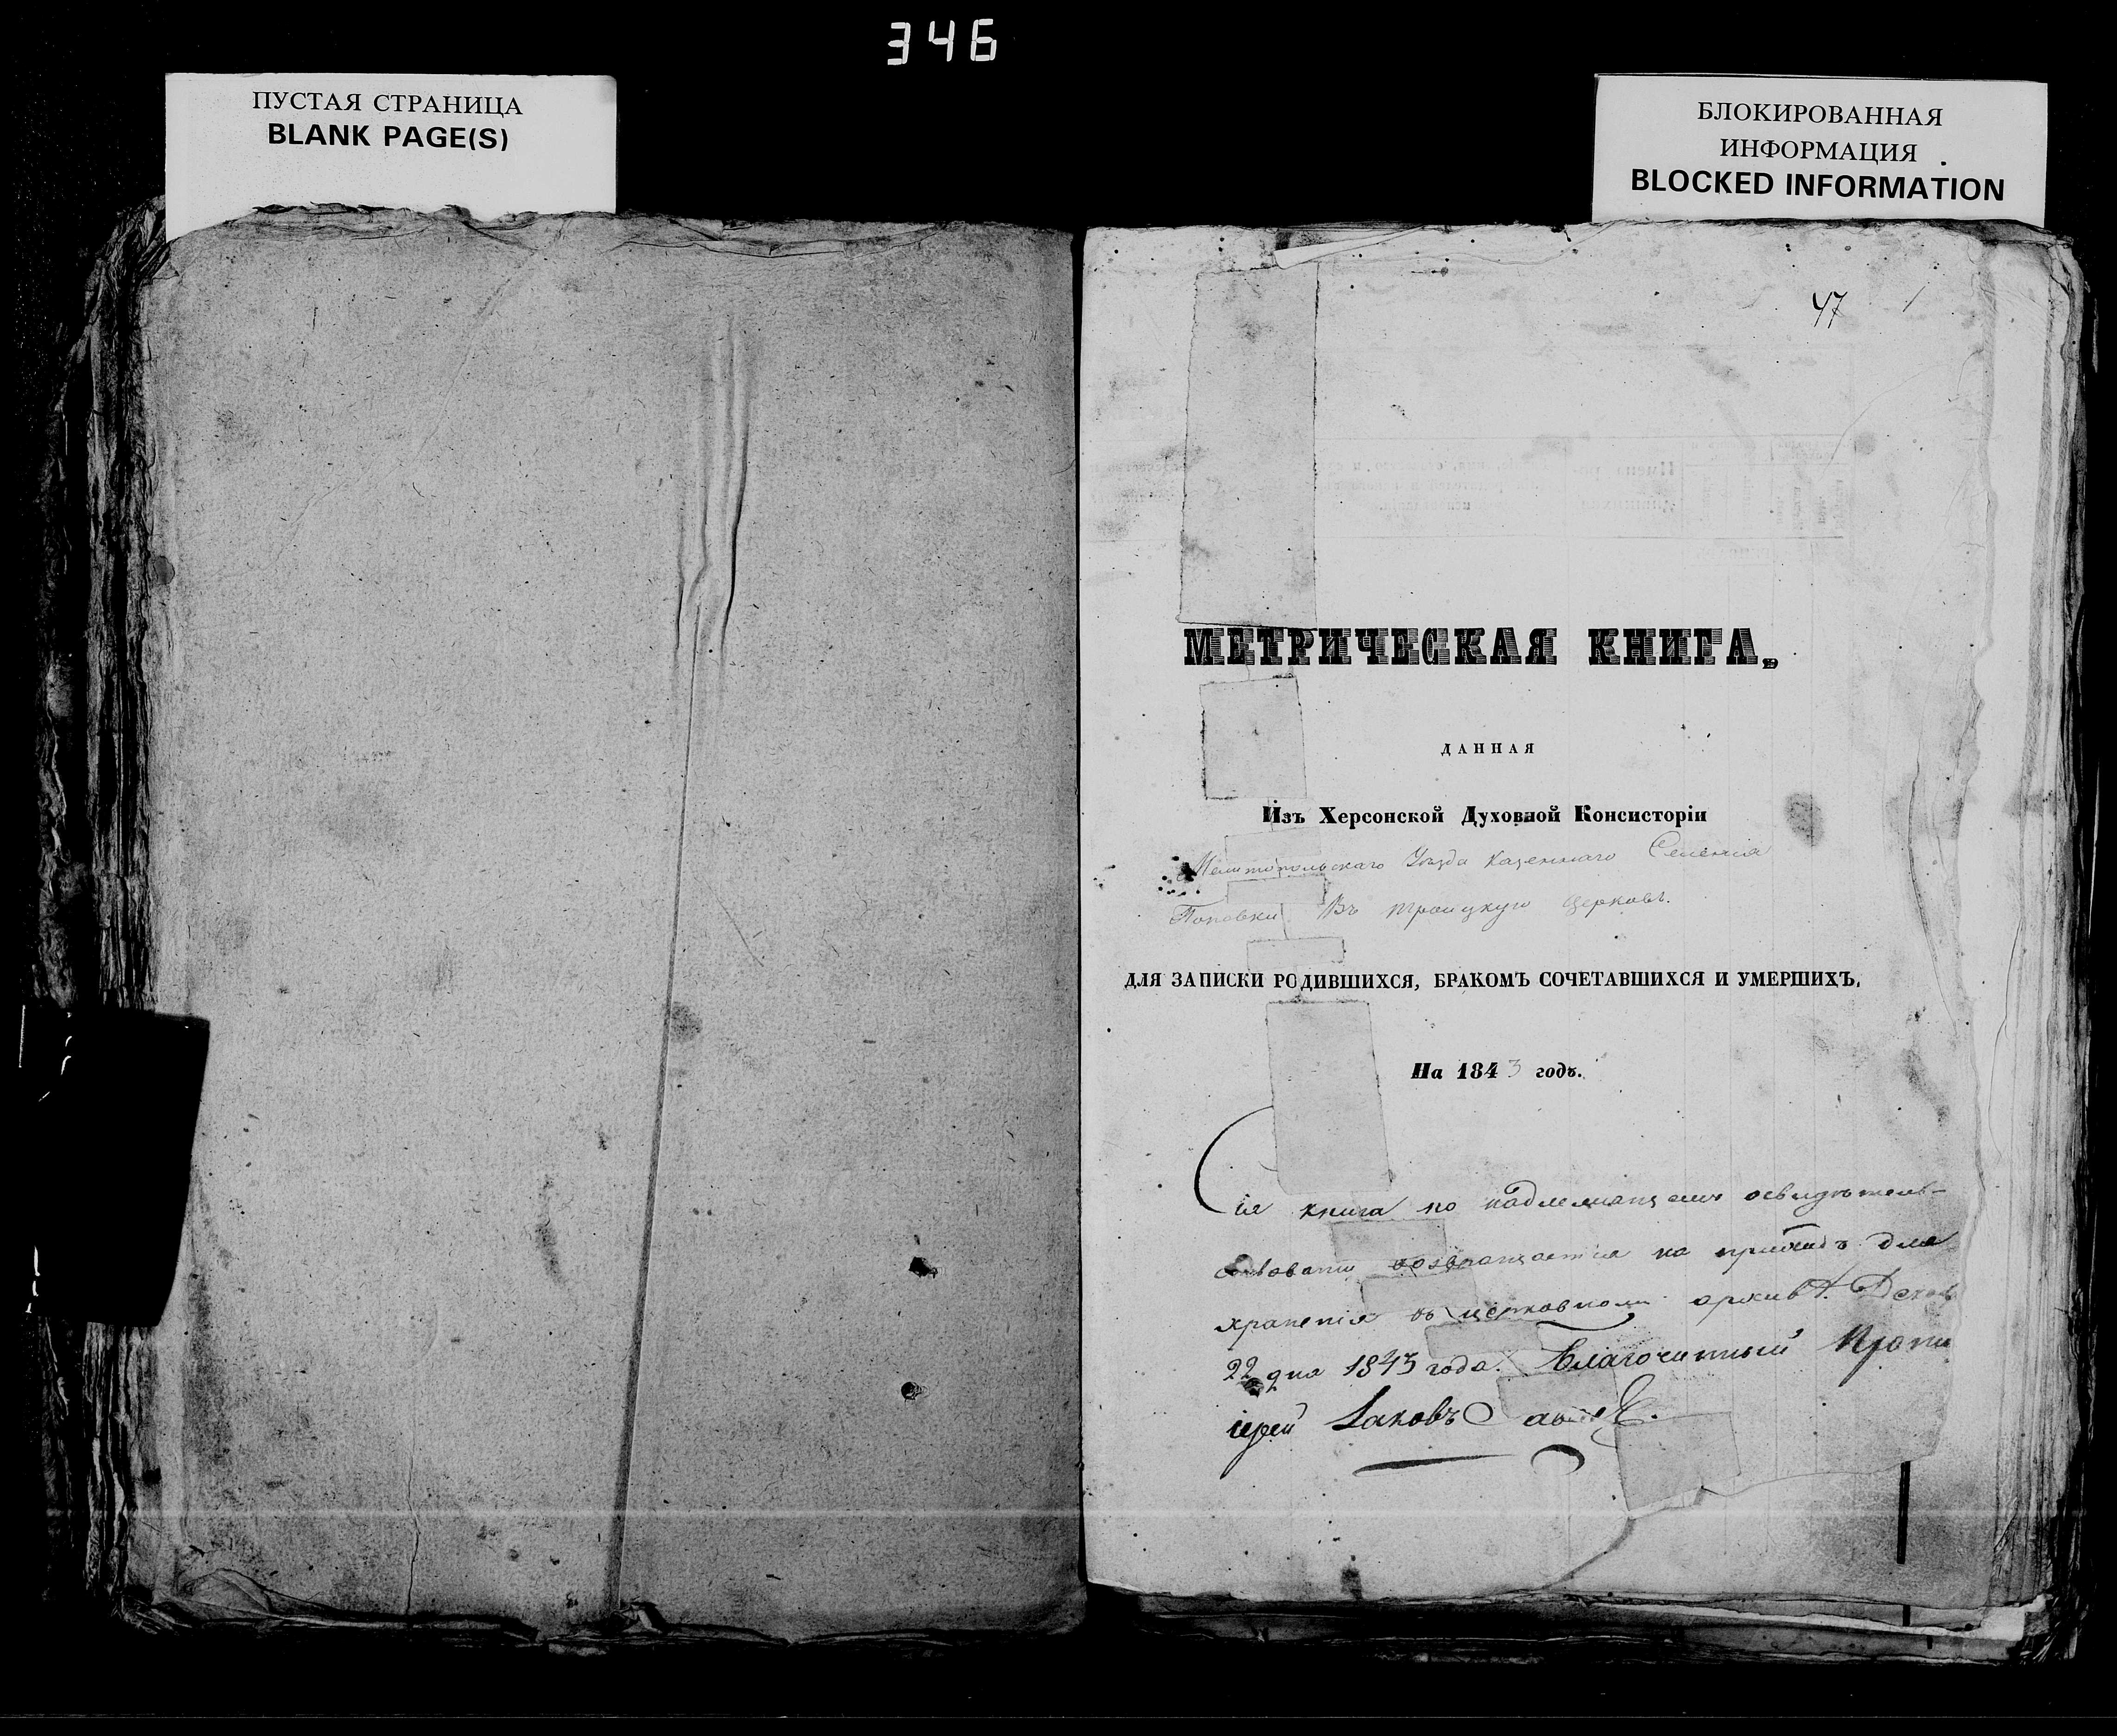 346
ПУСТАЯ СТРАНИЦА
BLANK PAGE(S)
БЛОКИРОВАННАЯ
ИНФОРМАЦИЯ
BLOCKED INFORMATION
47
МЕТРИЧЕСКАЯ КНИГА,
ДАННАЯ
Изъ Херсонской Духовной Консисторіи
Мелитопольскаго Уѣзда казеннаго Селенія
Поповки Въ троицкую церковь.
ДЛЯ ЗАПИСКИ РОДИВШИХСЯ, БРАКОМЪ СОЧЕТАВШИХСЯ И УМЕРШИХЪ.
На 1843 годъ.
Сія книга по надлежащемъ освидѣтель-
ствованіи возвращается на приходъ для
храненія въ церковномъ архивѣ.
22 дня 1843 года. Благочинный Прото
іерей Іаковъ